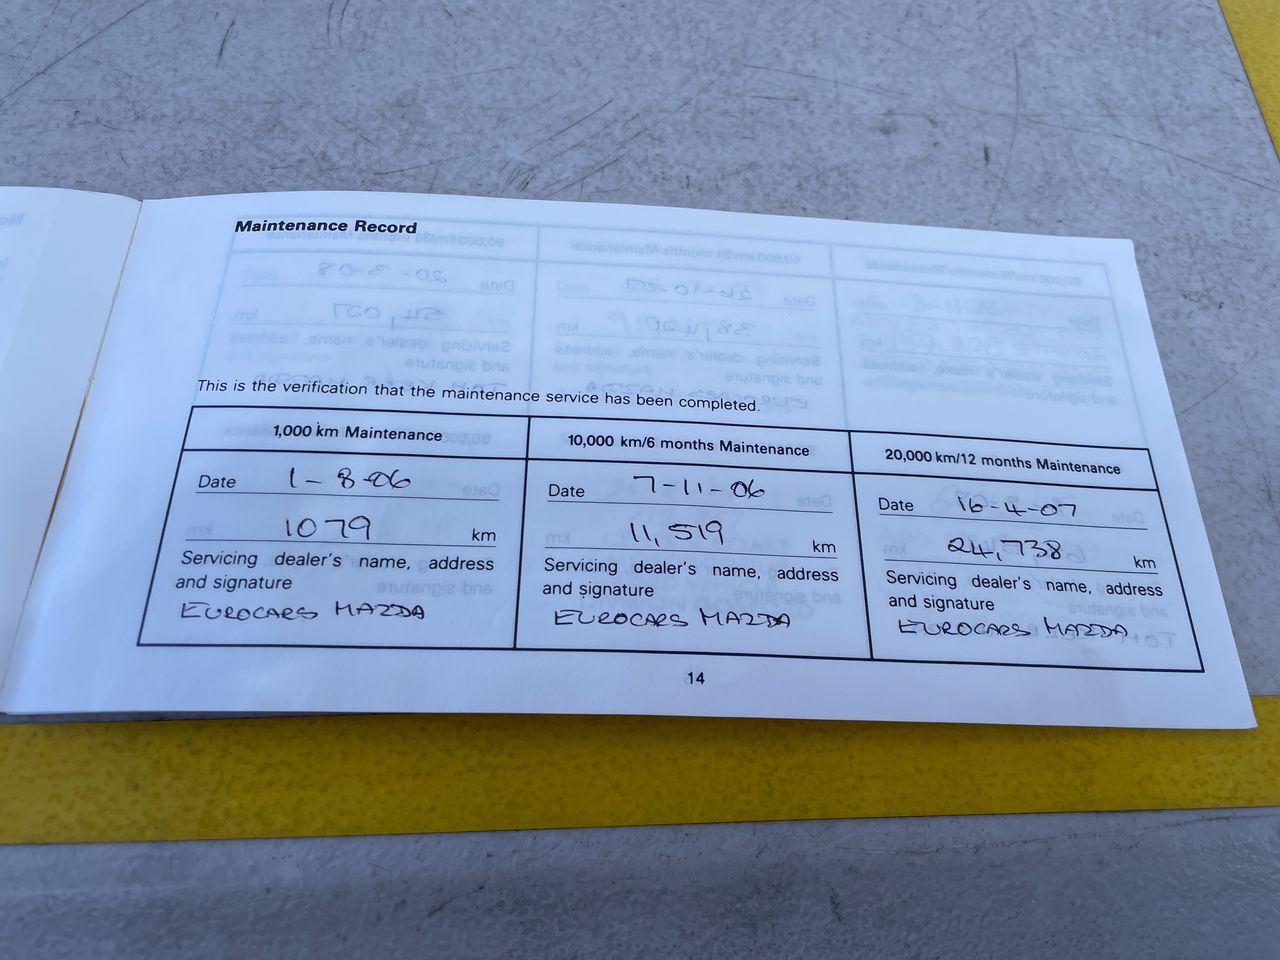 Maintenance Record
This is the verification that the maintenance service has been completed.
1,000 km Maintenance
Date 1-8-06
1079 km
Servicing dealer's name, address
and signature
EUROCARS MAZDA
10,000 km/6 months Maintenance
Date 7-11-06
11,519 km
Servicing dealer's name, address
and signature
EUROCARS MAZDA
20,000 km/12 months Maintenance
Date 16-4-07
24,738 km
Servicing dealer's name, address
and signature
EUROCARS MAZDA
14